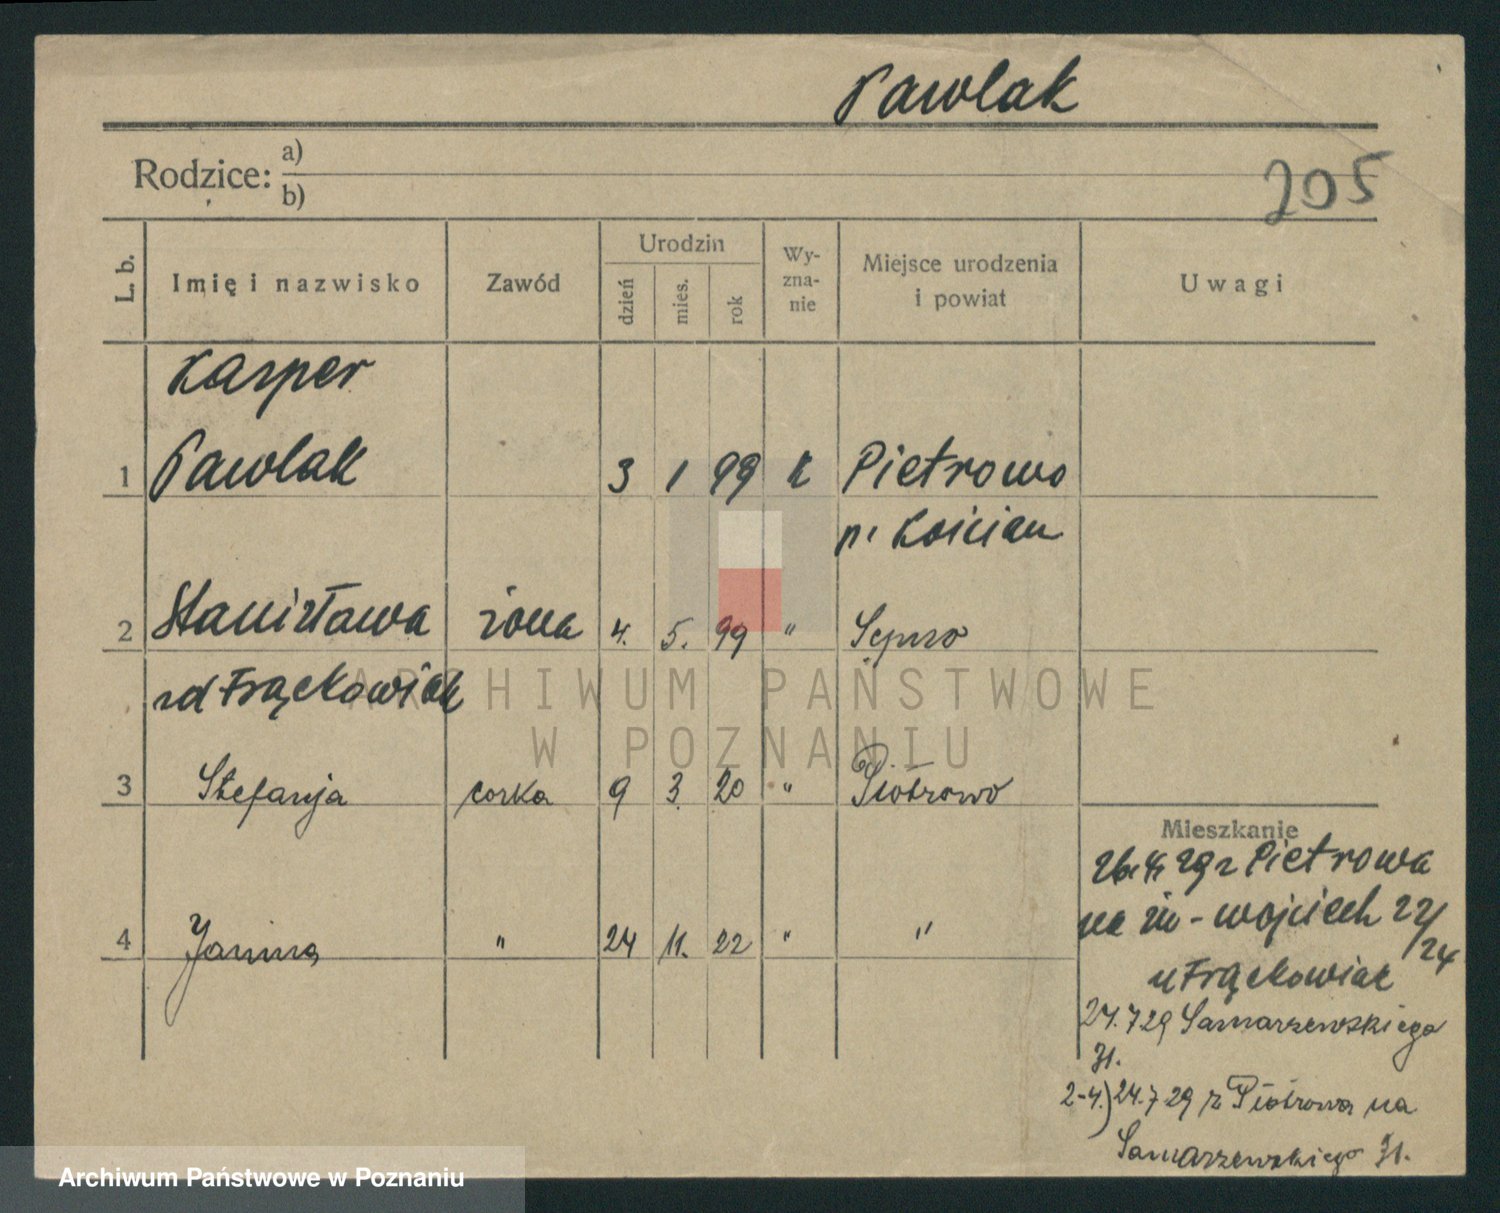 Pawlak
Rodzice: a)
b)
205
L. b. Imię i nazwisko Zawód Urodzin dzień mies. rok Wy-zna-nie Miejsce urodzenia i powiat Uwagi
Kasper
1 Pawlak 3 1 99 k Pietrowo
p. Kościan
2 Stanisława żona 4. 5. 99 " Sepno
zd Frąckowiak
3 Stefanja corka 9 3. 20 " Piotrowo
4 Janina " 24 11. 22 " "
Mieszkanie
26. 4. 29 z Pietrowa
na św-wojciech 22/24
u Frąckowiak
24. 7 29 Samarzewskiego
31.
2-4.) 24. 7 29 z Piotrowa na
Samarzewskiego 31.
ARCHIWUM PAŃSTWOWE
W POZNANIU
Archiwum Państwowe w Poznaniu